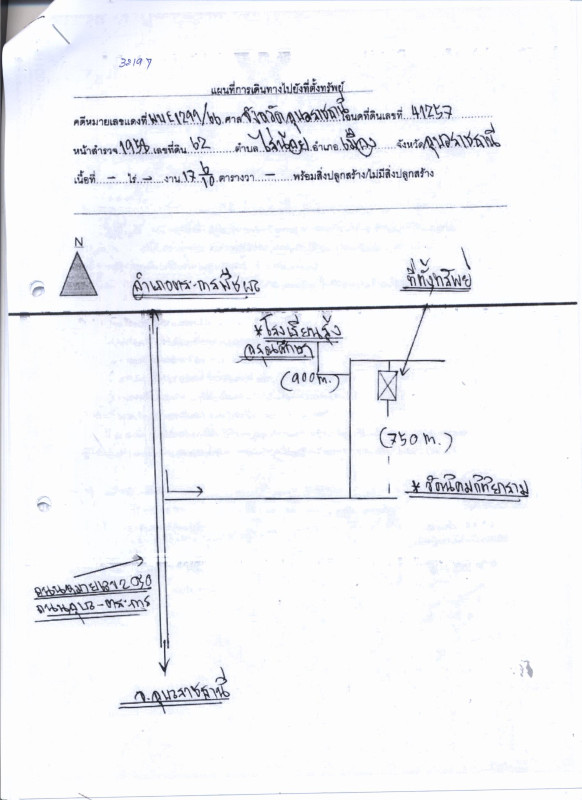 32197
แผนที่การเดินทางไปยังที่ตั้งทรัพย์
คดีหมายเลขแดงที่ ผบE1299/66 ศาล จังหวัดอุบลราชธานี โฉนดที่ดินเลขที่ 41257
หน้าสำรวจ 1956 เลขที่ดิน 62 ตำบล ไร่น้อย อำเภอ เมือง จังหวัด อุบลราชธานี
เนื้อที่ - ไร่ - งาน 17 6/10 ตารางวา - พร้อมสิ่งปลูกสร้าง/ไม่มีสิ่งปลูกสร้าง
N
อำเภอตระการพืชผล
ที่ตั้งทรัพย์
*โรงเรียนรุ้ง
อรุณศึกษา
(900 m.)
(750 m.)
ถนนหมายเลข 2050
ถนนอุบล-ตระการ
จ.อุบลราชธานี